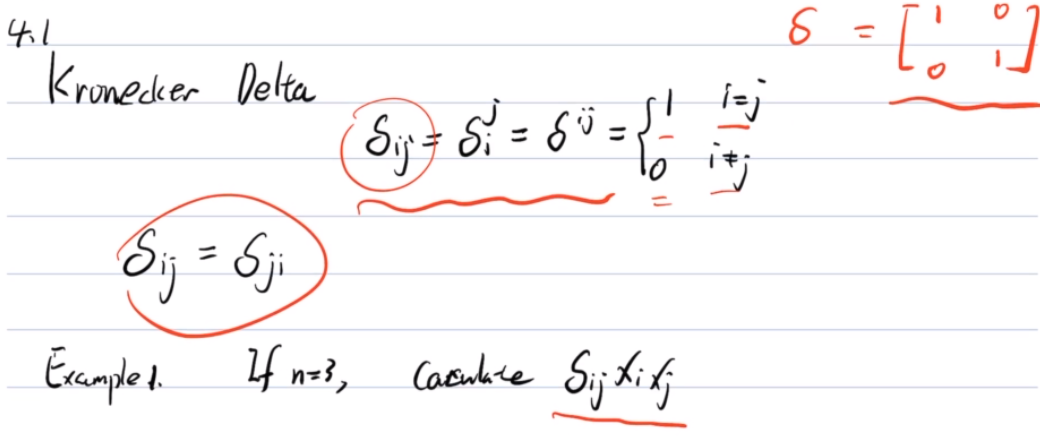 4.1
δ = [1 0
0 1]
Kronecker Delta
δᵢⱼ = δᵢʲ = δⁱʲ = { 1 i=j
0 i≠j
δᵢⱼ = δⱼᵢ
Example 1. If n=3, Calculate δᵢⱼ xᵢ xⱼ